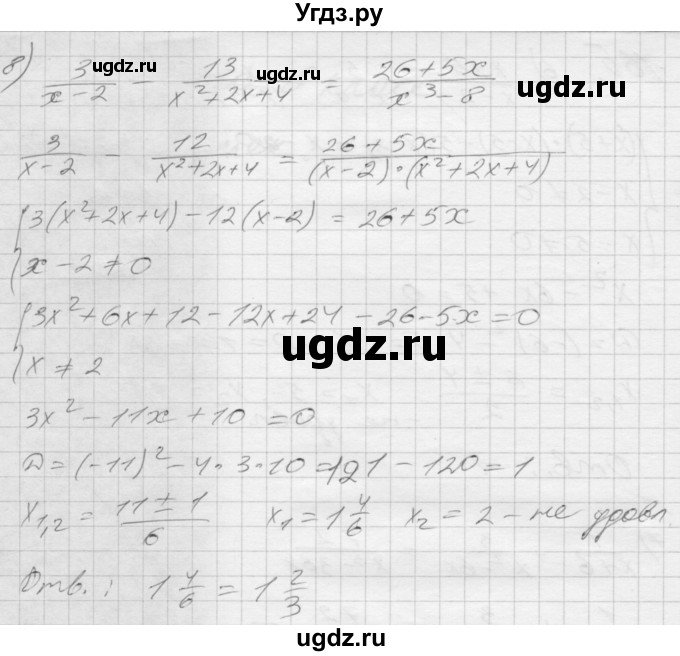 Угдз.ру
8) 3/(x-2) - 13/(x²+2x+4) = (26+5x)/(x³-8)
ugdz.ru ugdz.ru ugdz.ru
3/(x-2) - 12/(x²+2x+4) = (26+5x)/((x-2)·(x²+2x+4))
{3(x²+2x+4)-12(x-2) = 26+5x
x-2≠0
{3x²+6x+12-12x+24-26-5x=0
ugdz.ru
x≠2
3x²-11x+10=0
D=(-11)²-4·3·10=121-120=1
x₁,₂ = (11±1)/6 x₁=1 4/6 x₂=2 - не удовл.
Отв.: 1 4/6 = 1 2/3
ugdz.ru